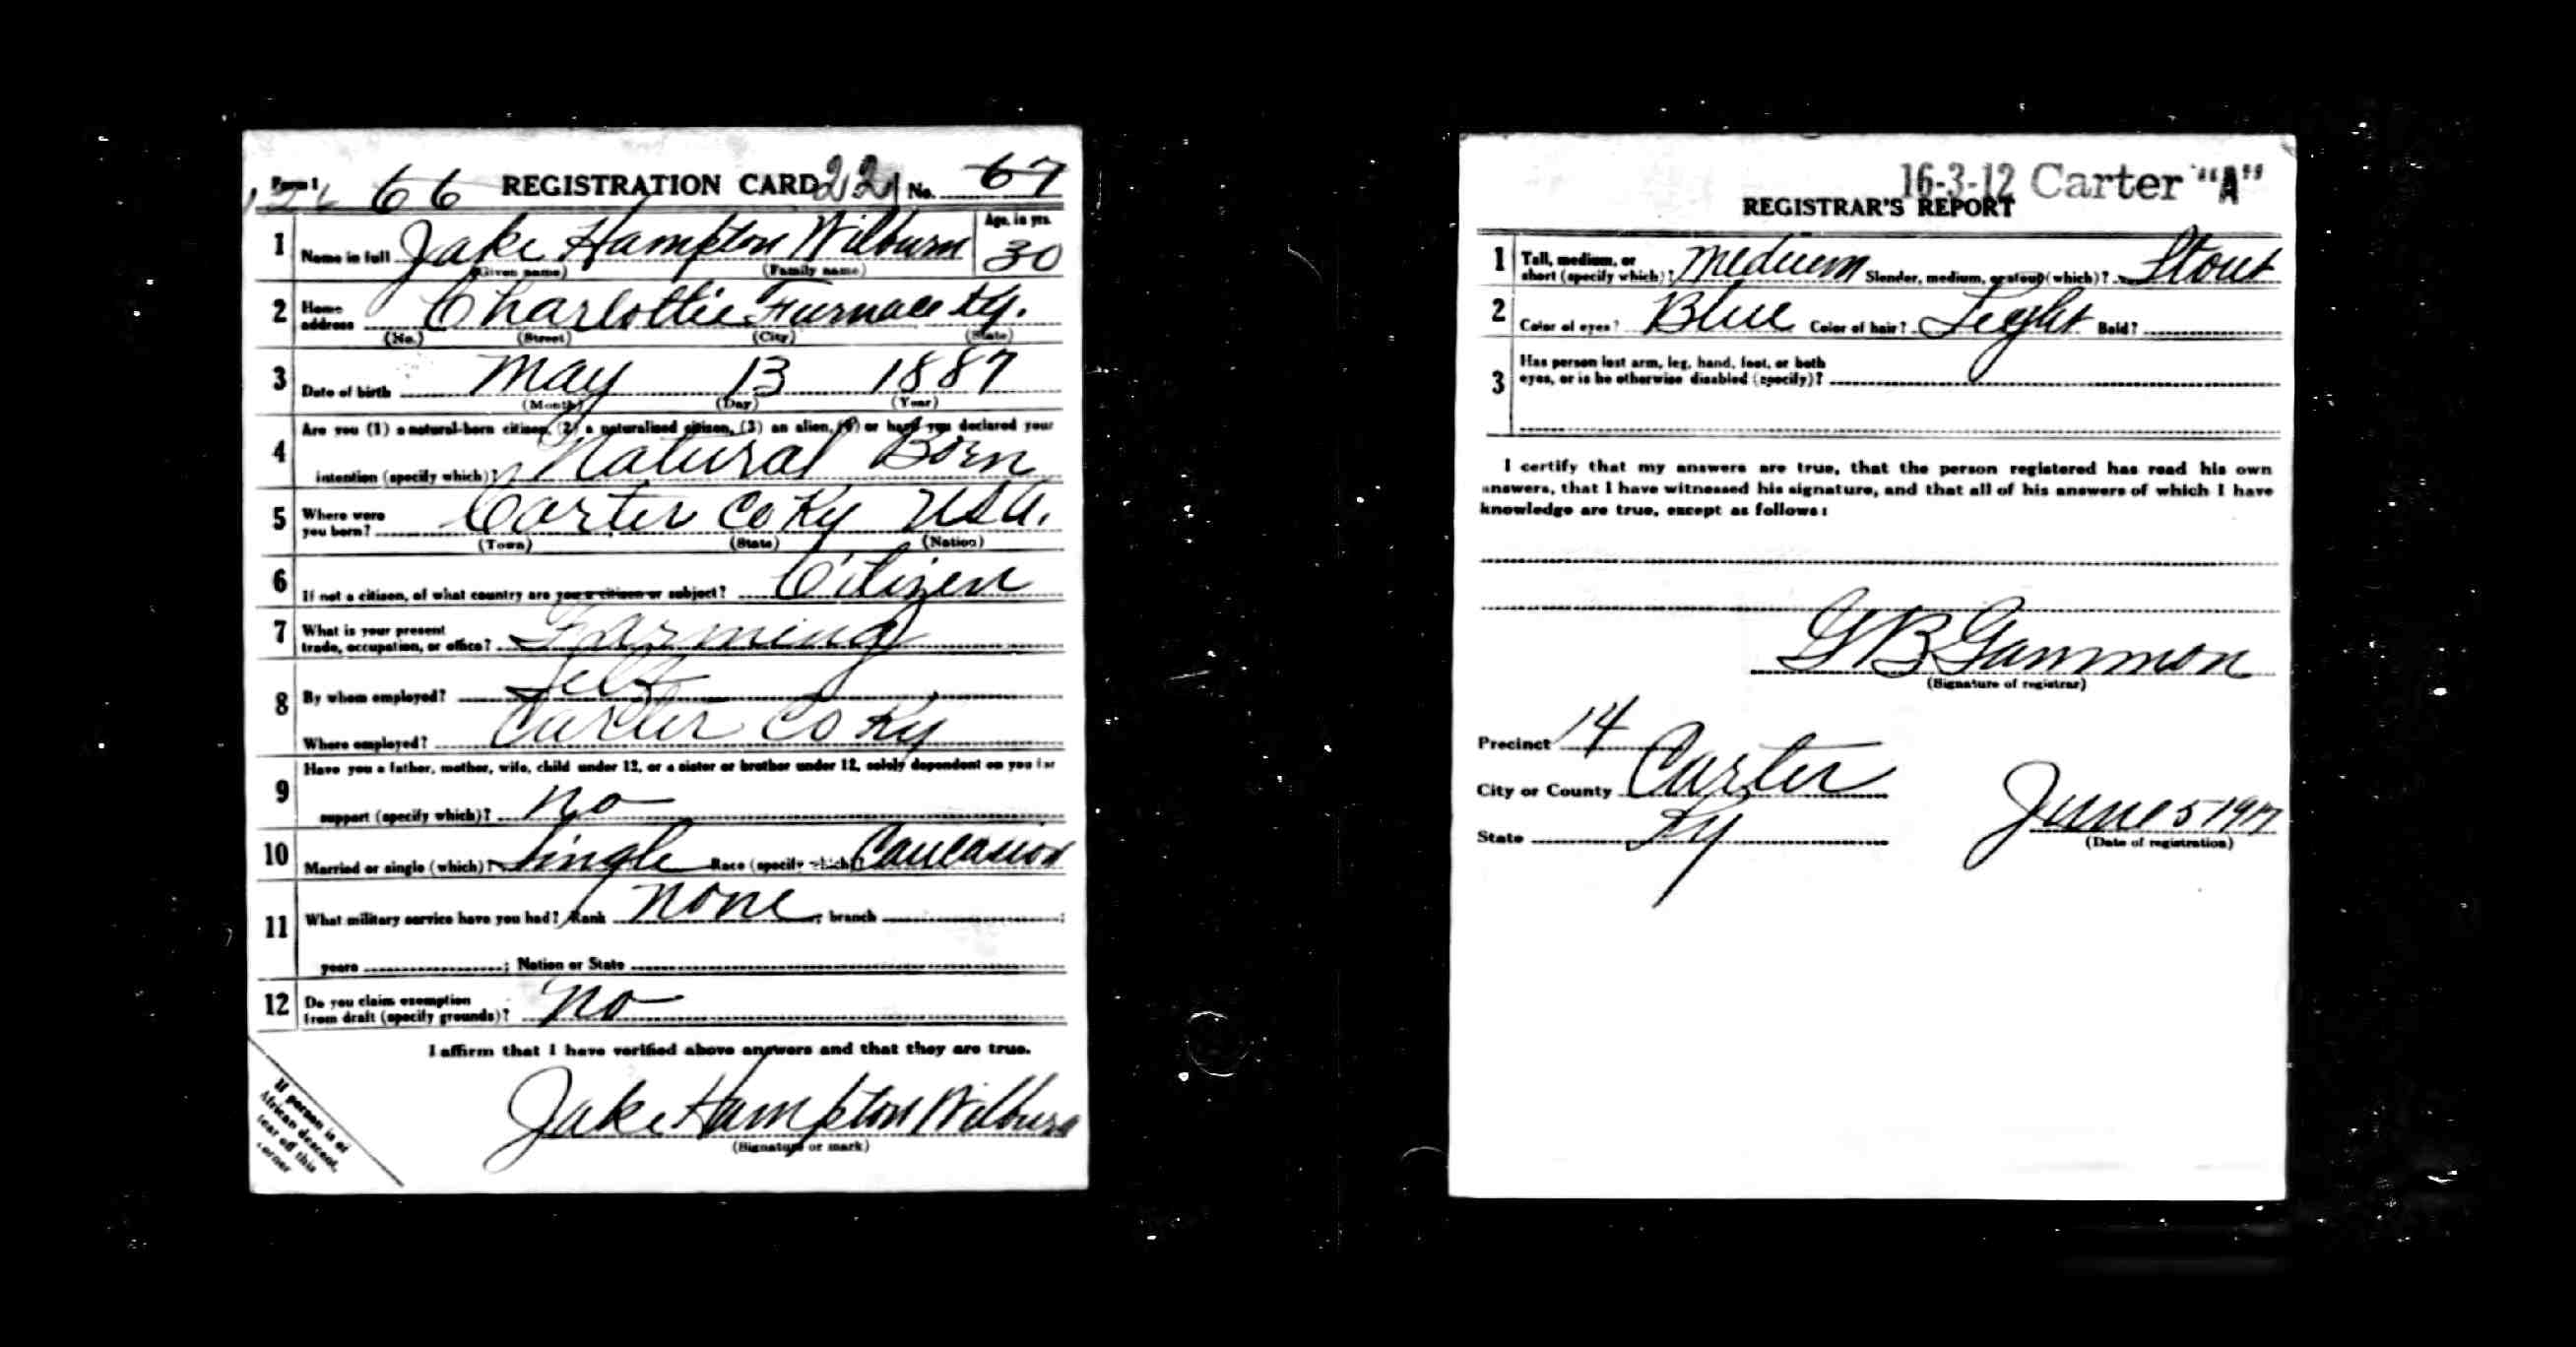 Form 1 66 REGISTRATION CARD 221 No. 67
1 Name in full Jake Hampton Wilburn Age, in yrs. 30
(Given name) (Family name)
2 Home address Charlottie Furnace Ky.
(No.) (Street) (City) (State)
3 Date of birth May 13 1887
(Month) (Day) (Year)
4 Are you (1) a natural-born citizen, (2) a naturalized citizen, (3) an alien, (4) or have you declared your
intention (specify which)? Natural Born
5 Where were you born? Carter Co Ky USA.
(Town) (State) (Nation)
6 If not a citizen, of what country are you a citizen or subject? Citizen
7 What is your present trade, occupation, or office? Farming
8 By whom employed? Self
Where employed? Carter Co Ky
9 Have you a father, mother, wife, child under 12, or a sister or brother under 12, solely dependent on you for
support (specify which)? No
10 Married or single (which)? Single Race (specify which)? Caucasion
11 What military service have you had? Rank None ; branch ;
years ; Nation or State
12 Do you claim exemption from draft (specify grounds)? No
I affirm that I have verified above answers and that they are true.
Jake Hampton Wilburn
(Signature or mark)
If person is of
African descent,
tear off this
corner
16-3-12 Carter "A"
REGISTRAR'S REPORT
1 Tall, medium, or short (specify which)? Medium Slender, medium, or stout (which)? Stout
2 Color of eyes? Blue Color of hair? Light Bald?
3 Has person lost arm, leg, hand, foot, or both
eyes, or is he otherwise disabled (specify)?
I certify that my answers are true, that the person registered has read his own
answers, that I have witnessed his signature, and that all of his answers of which I have
knowledge are true, except as follows:
G B Gammon
(Signature of registrar)
Precinct 14
City or County Carter
State Ky June 5 1917
(Date of registration)